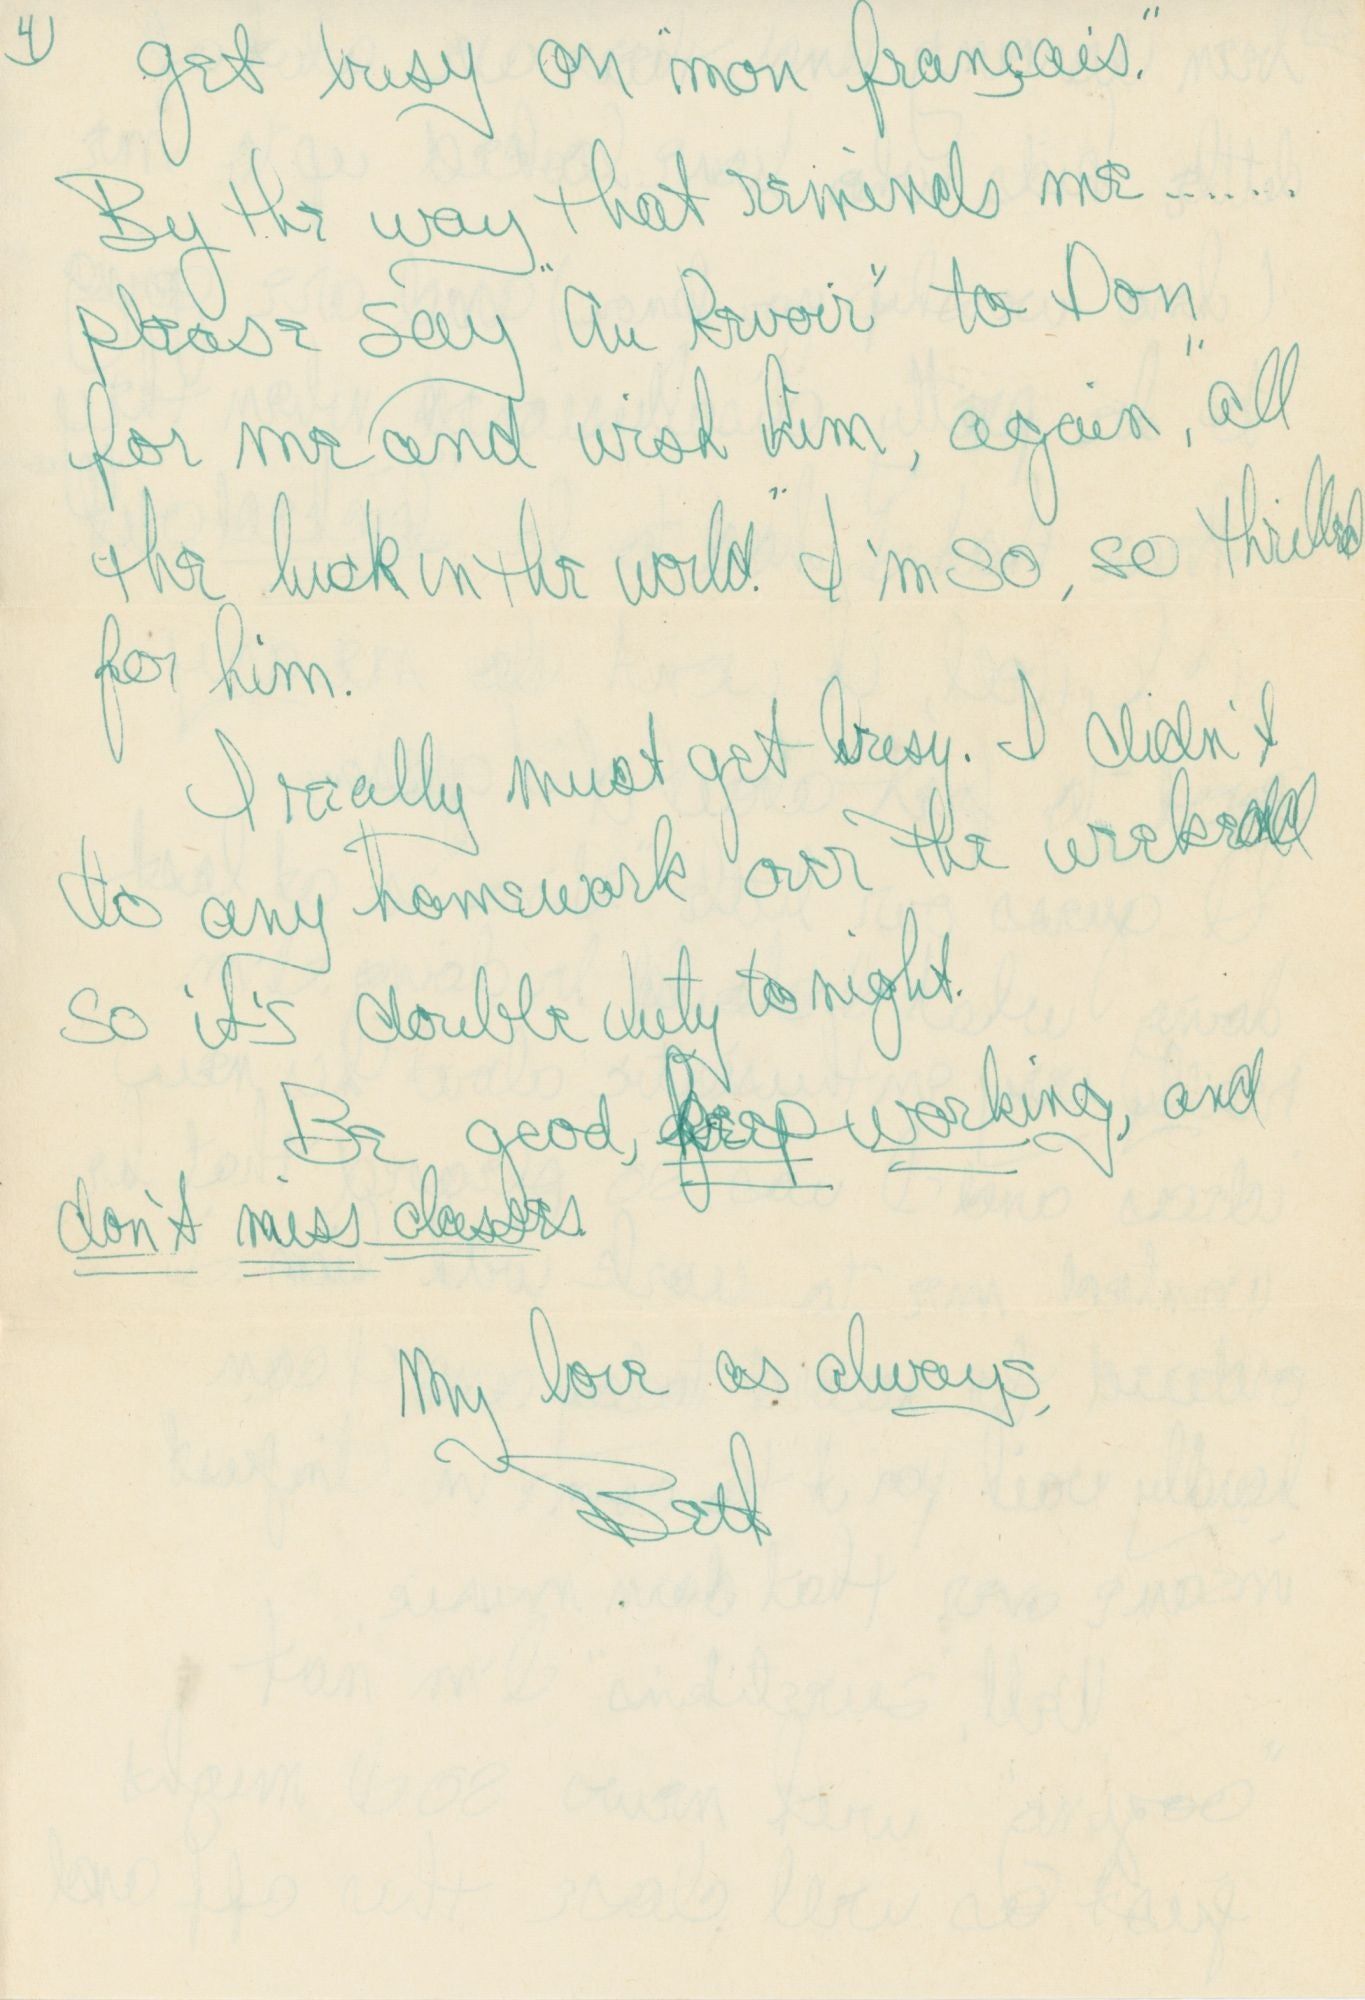 4)
get busy on "mon français."
By the way that reminds me.......
please say "Au Revoir" to Don
for me and wish him, again, "all
the luck in the world." I'm so, so thrilled
for him.
I really must get busy. I didn't
do any homework over the weekend
so it's double duty tonight.
Be good, keep working, and
don't miss classes.
My love as always,
Beth